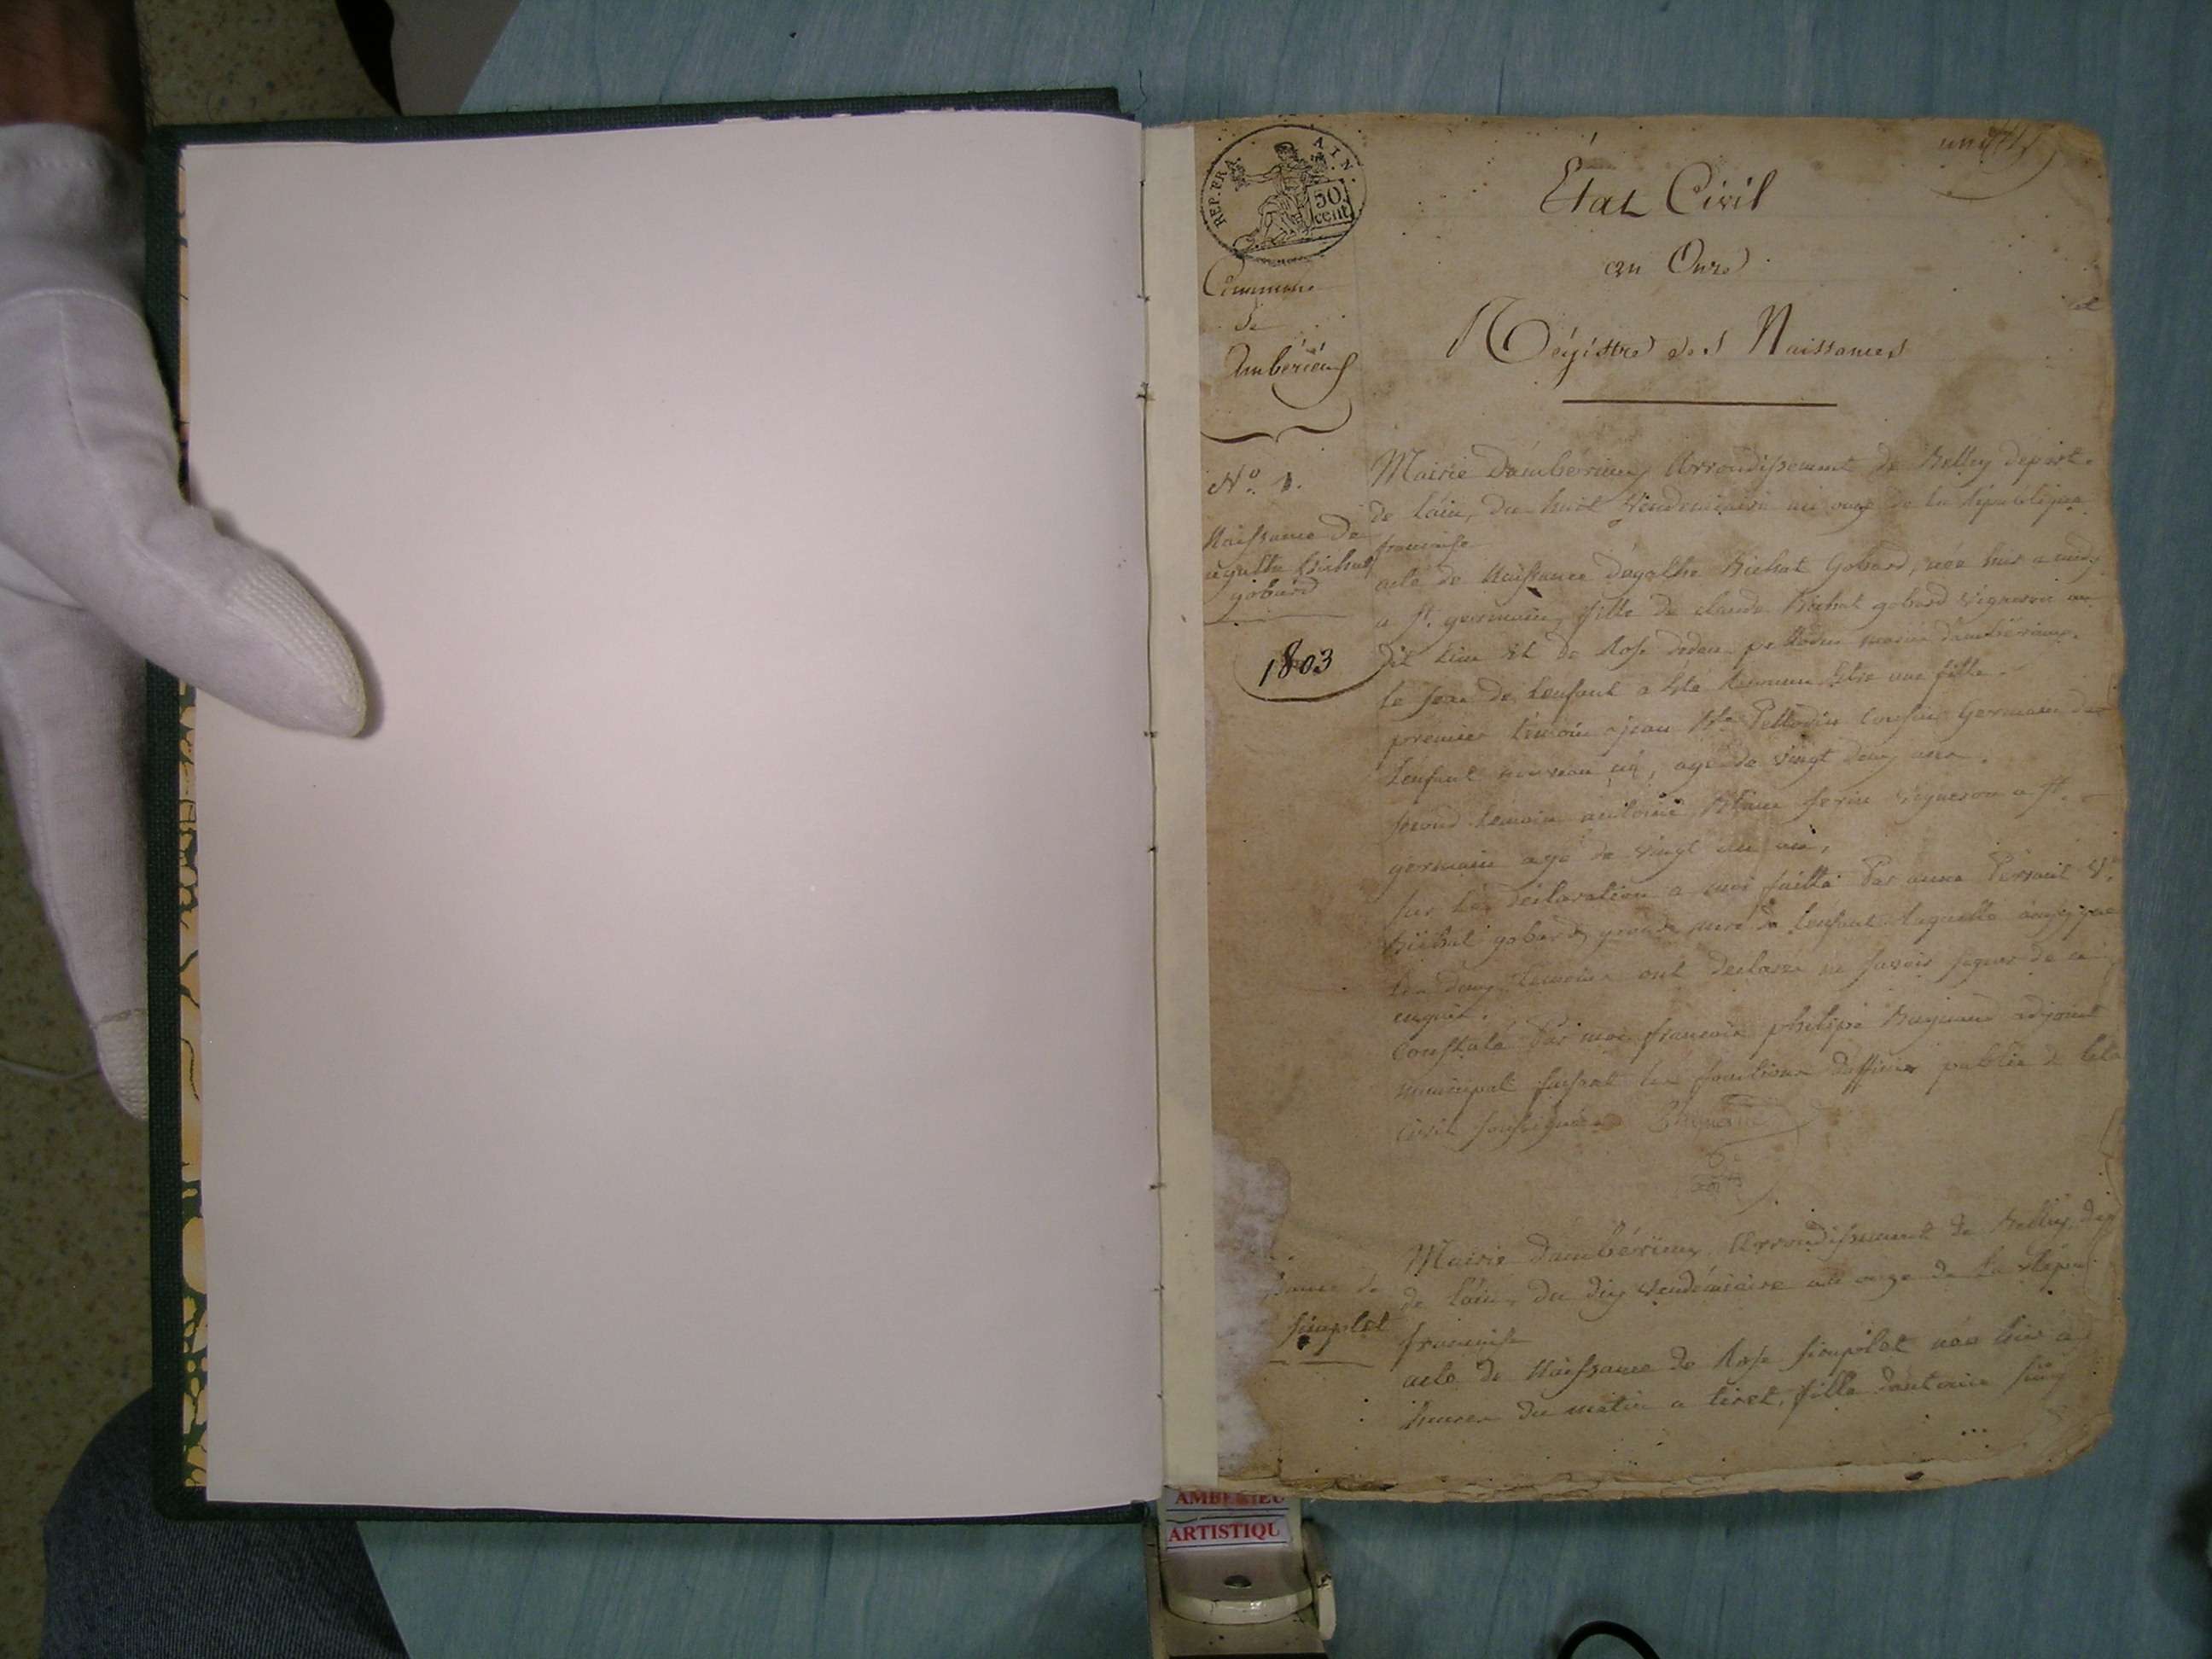 REP. FRA. AIN.
50
cent
État Civil
an Onze
Régistre des Naissances
Commune
de
Ambérieux
N.º 1.
Naissance de
agathe bichat
gobard
1803
Mairie Dambérieux Arrondissement de Belley départ.
de lain, du huit Vendemiaire an onze de la République
francaise
acte de Naissance dagathe Bichat Gobard, née hier a midy
a St. germain, fille de claude Bichat gobard Vigneron au
dit lieu et de Rose
le sexe de lenfant a été reconnu être une fille.
premier témoin jean Bte Pellodin Cousin Germain de
lenfant nouveau né, agé de vingt deux ans.
second témoin antoine vigneron a St.
germain agé de vingt un an,
sur la déclaration a moi faitte Par anne V.e
Bichat gobard, grande mere de lenfant laquelle
les deux témoins ont déclarés ne savoir signer de ce
enquis.
Constaté Par moi francois philipe adjoint
municipal faisant les fonctions dofficier public de léta
civil soussigné
Mairie Dambérieux Arrondissement de Belley, dép
de lain, du dix Vendémiaire an onze de la Répu
francaise
acte de Naissance de Rose simplet née hier a
heures du matin a tiret, fille dantoine
sance de
simplet
AMBERIEU
ARTISTIQU